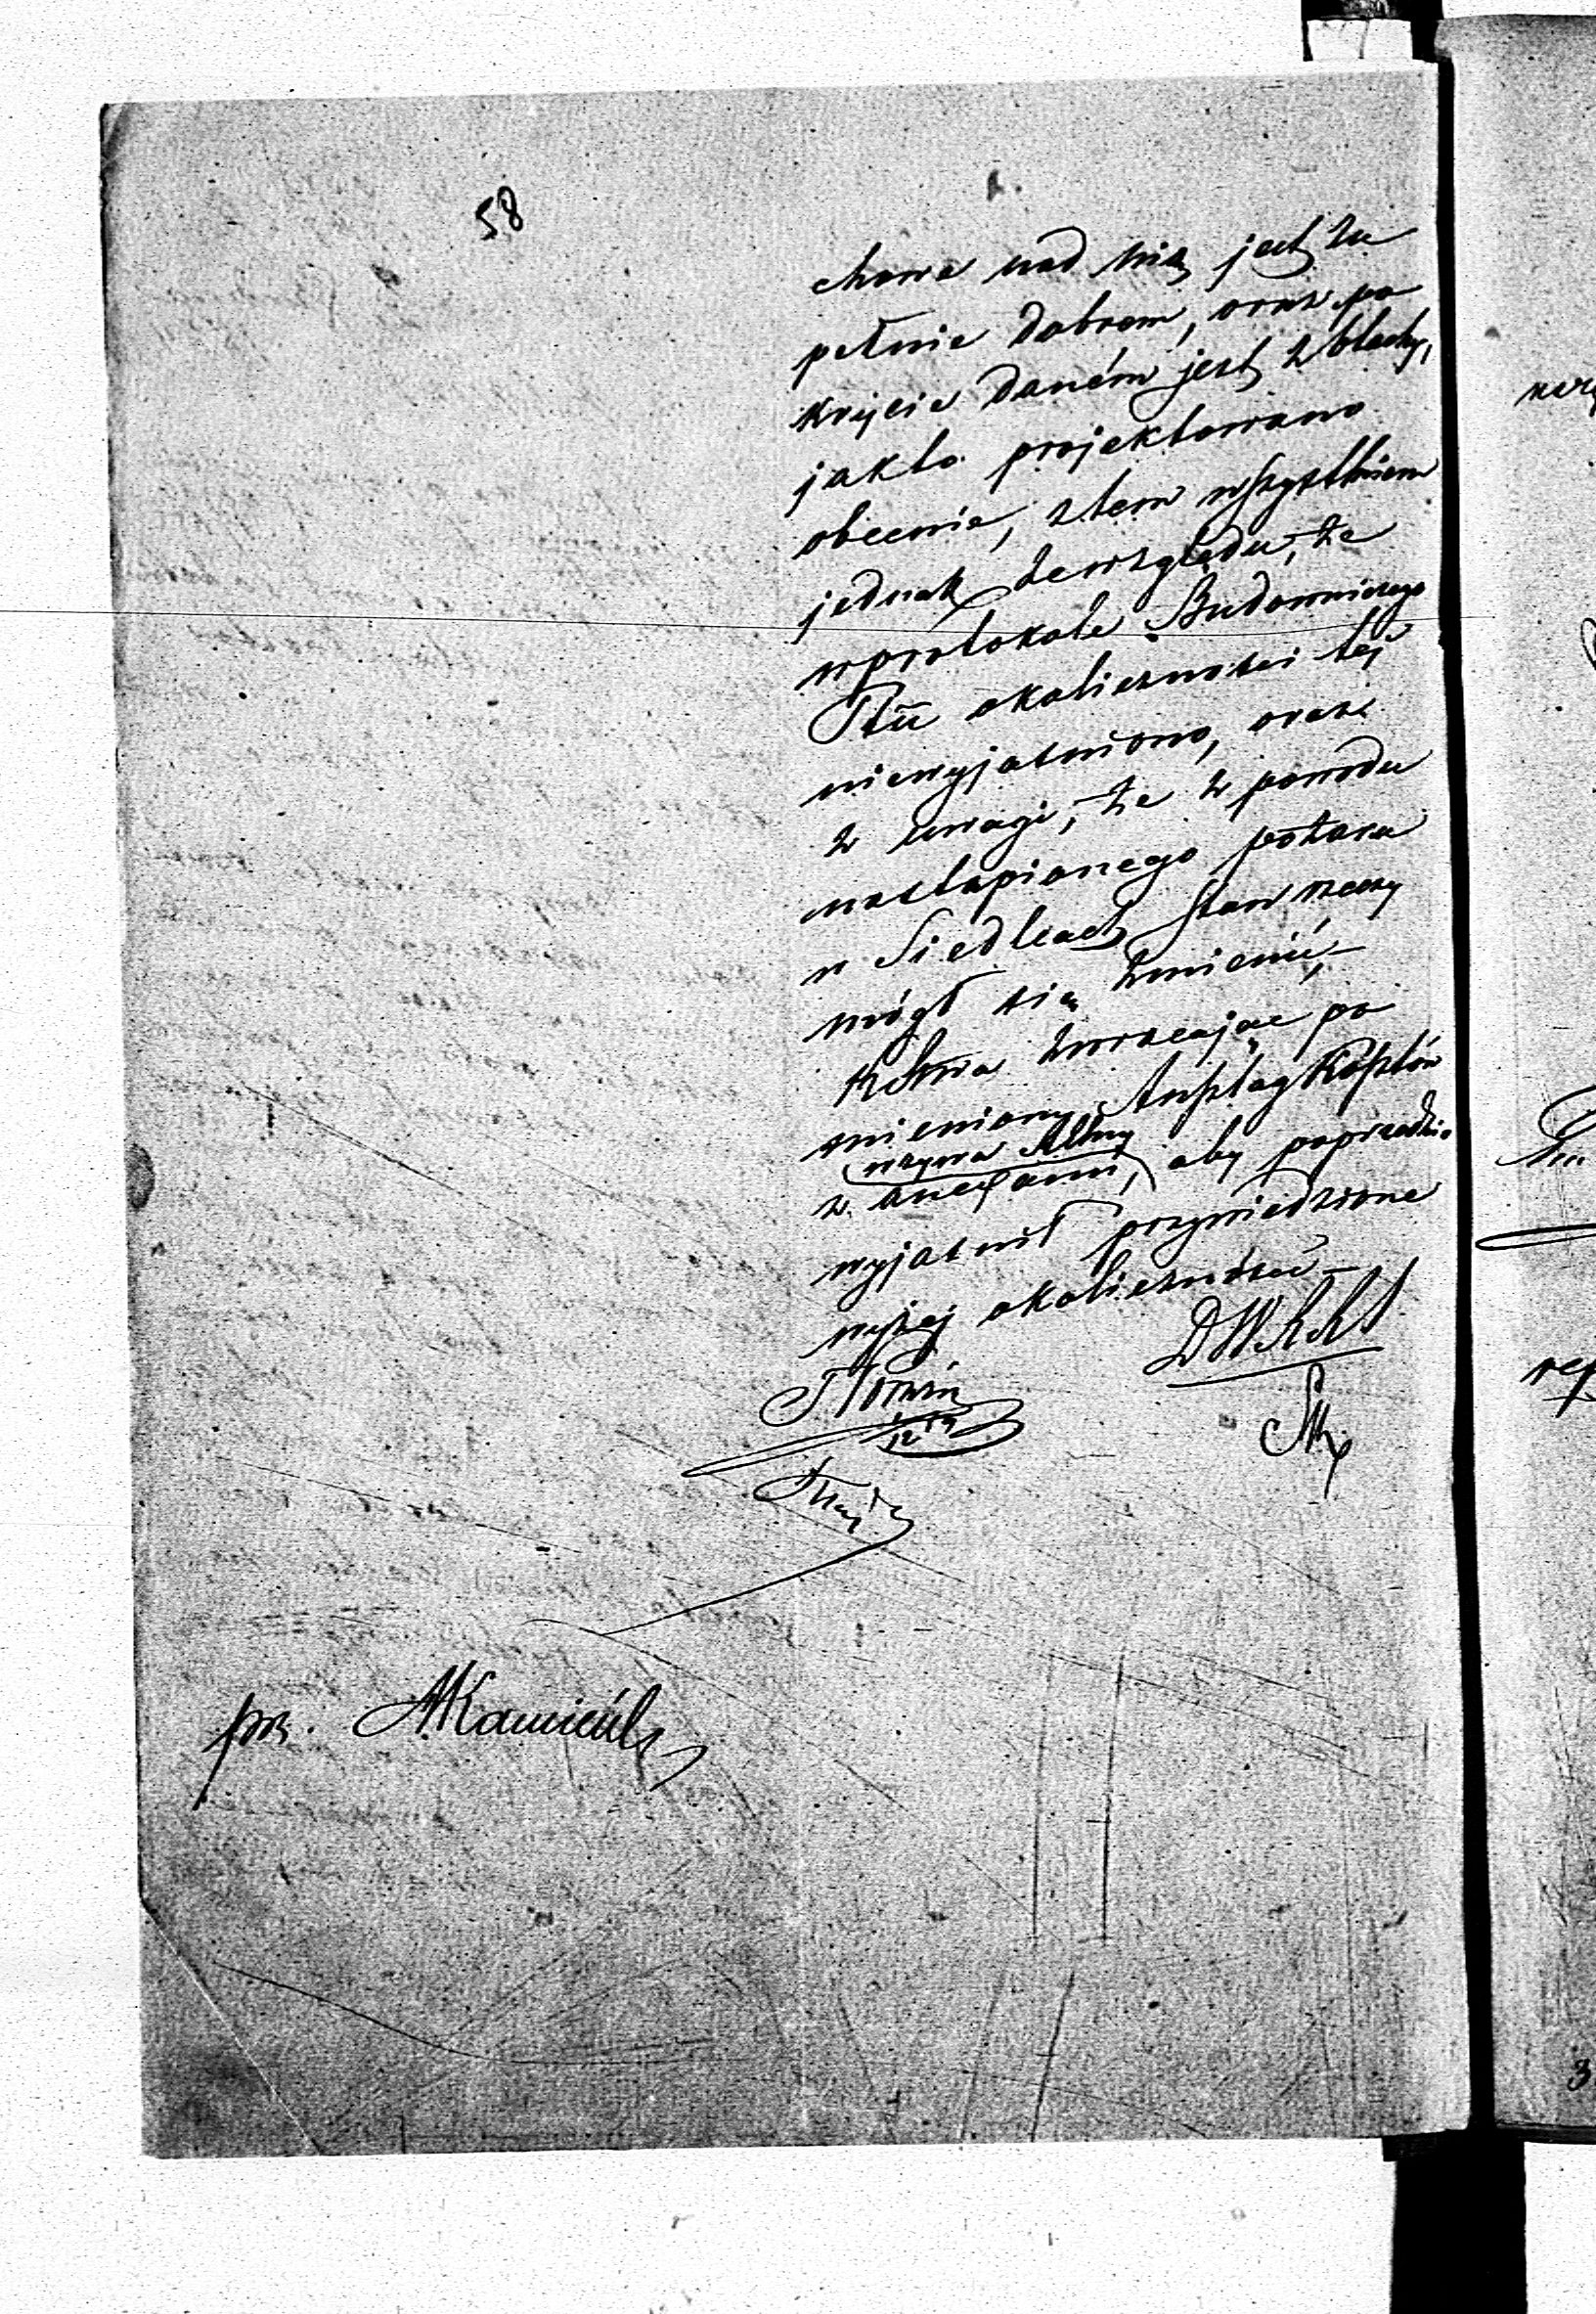 58
chowa nad nią jest zu
pełnie dobrem, oraz po
krycie daném jest z blachy,
jakto projektowano
obecnie, ztem wszystkiem
jednak zewzględu, że
wprotokole Budowniczego
Ptu okoliczności tej
niewyjaśniono, oraz
z uwagi, że z powodu
nastąpionego pożaru
w Siedlcach stan rzeczy
mógł się zmienić,—
zwracając po
mieniony Anszlag Kosztów
z anexami, wzywa
aby poprzednio
wyjaśnił przywiedzione
wyżej okoliczności—
pr. AKamieńsk